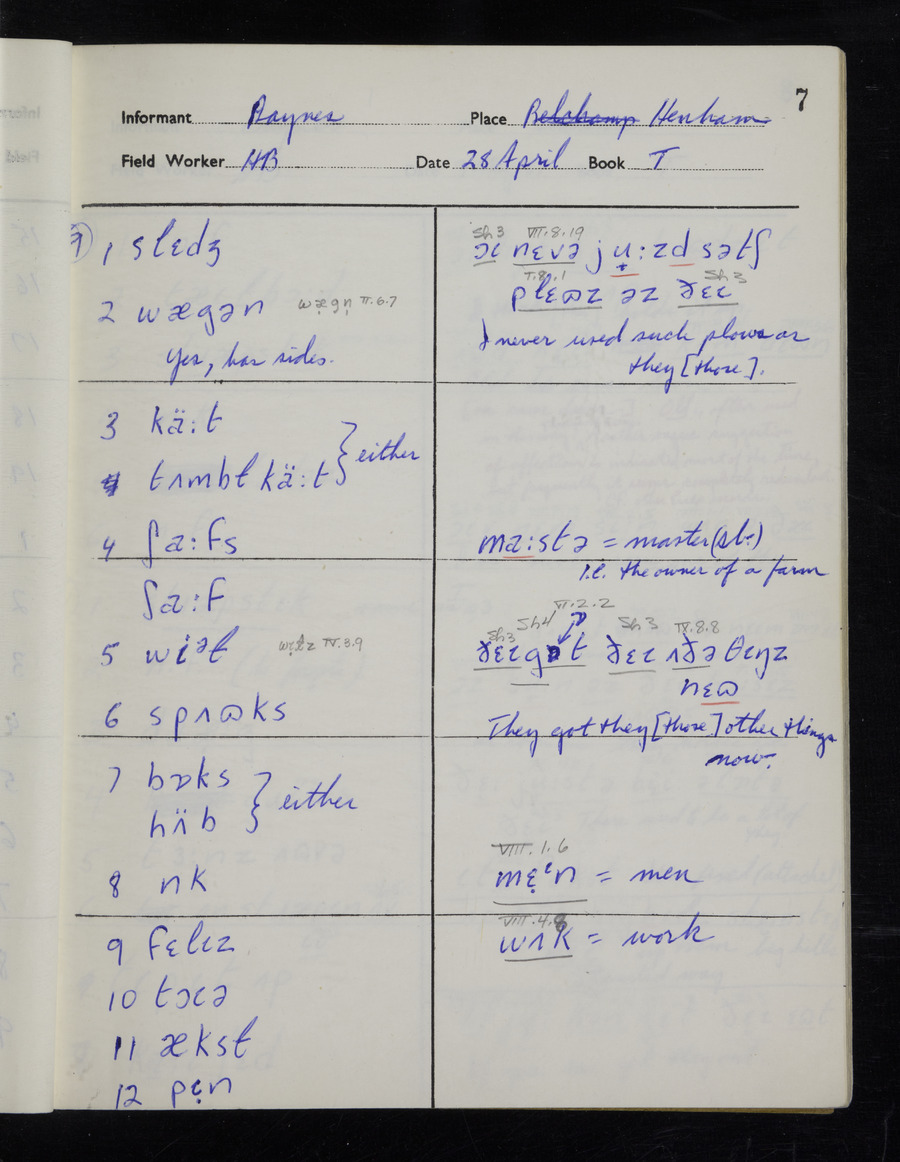 7
Informant Raynes Place Belchamp Henham
Field Worker HB Date 28 April Book I
9) 1 slɛdʒ
2 wægən wæ̣gṇ II.6.7
Yes, has sides.
3 kä:t
tʌmbɫ kä:t } either
4 ʃa:fs
ʃa:f
5 wiəɫ wịɫz IV.3.9
6 spʌɷks
7 bɒks
hʌ̈b } either
8 nk
9 fɛlɪz
10 tɔɪə
11 ækst
12 pɛ̣n
Sh3 VII.8.19
ɔɪ nɛvə ju̟:zd sətʃ
I.8.1 Sh3
plɛɷz əz ðɛɪ
I never used such plows as
they [those].
ma:stə = master (sb.)
i.e. the owner of a farm
VI.2.2
Sh3 Sh4 Sh3 IX.8.8
ðɛɪ gɒt ðɛɪ ʌðə θɪŋz
nɛɷ
They got they [those] other things
now.
VIII.1.6
mɛ̣ɪn = men
VIII.4.8
wʌk = work